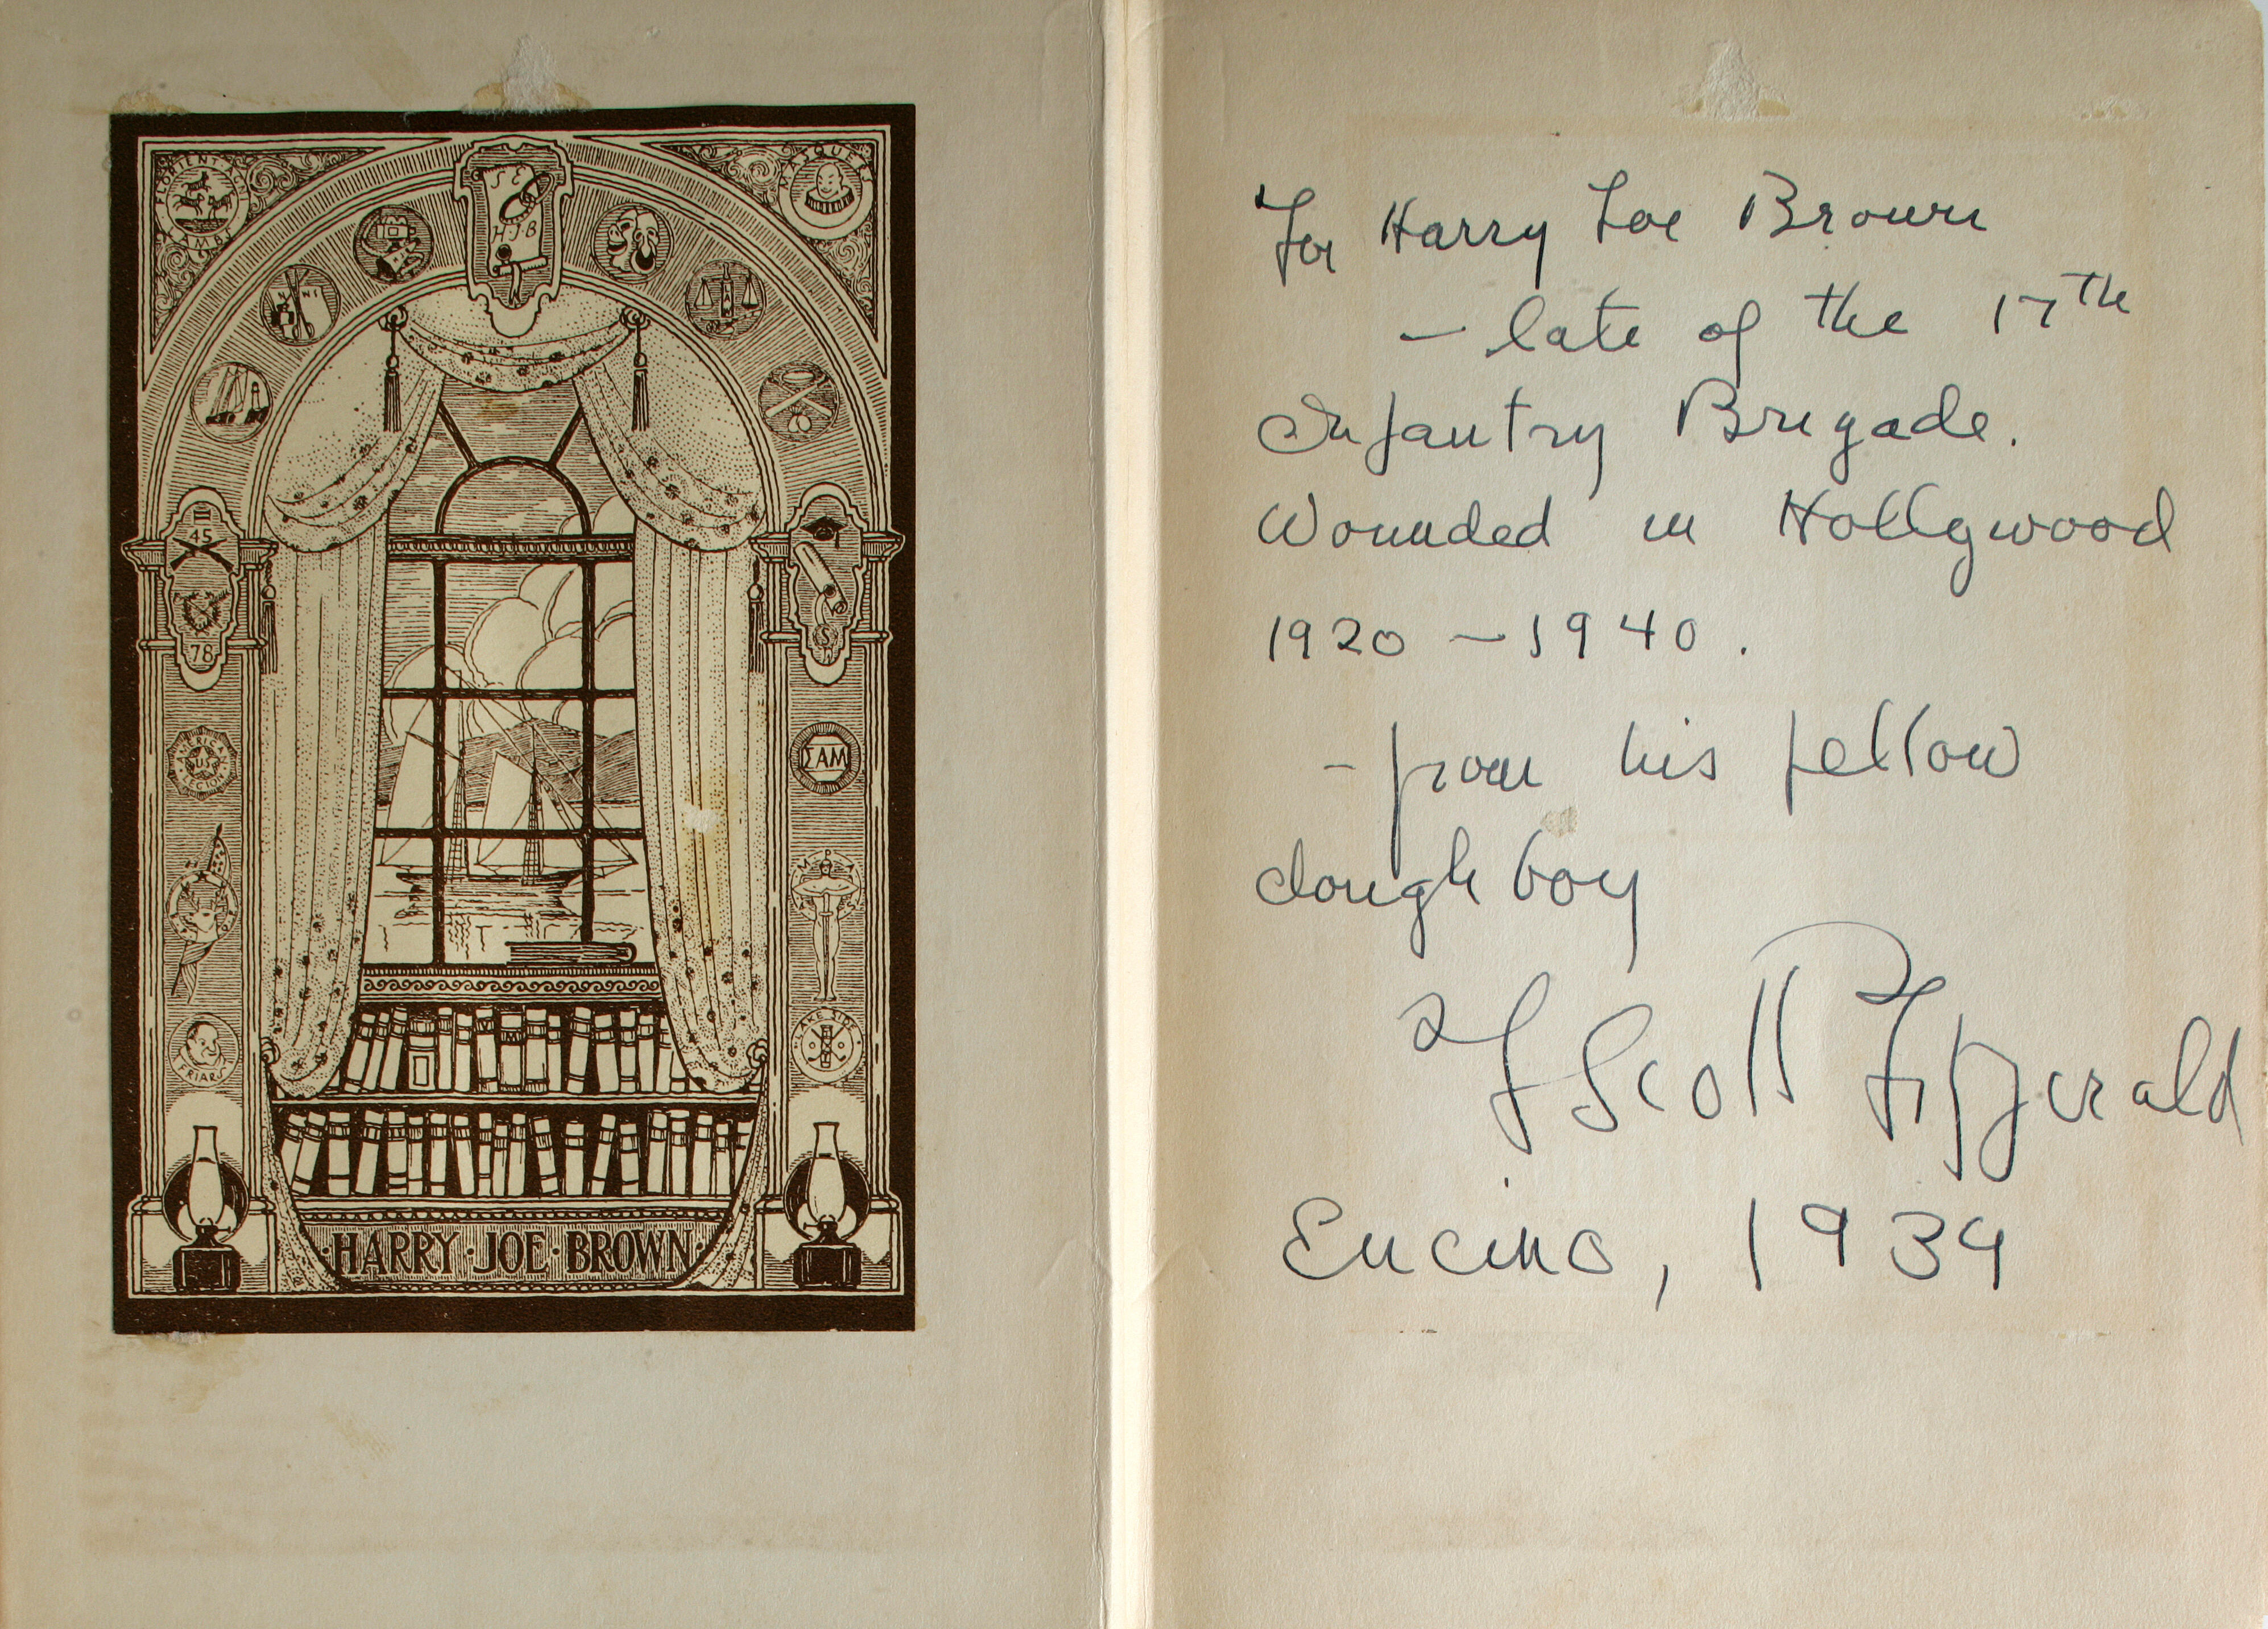 FLORIENTINI
LAMBS
S E
H J B
MASQUERS
45
78
AMERICAN
LEGION
US
FRIARS
ΣAM
M P
LAKESIDE
S
HARRY · JOE · BROWN
For Harry Joe Brown
– late of the 17th
Infantry Brigade.
Wounded in Hollywood
1920 – 1940.
– from his fellow
dough boy
F Scott Fitzgerald
Encino, 1939